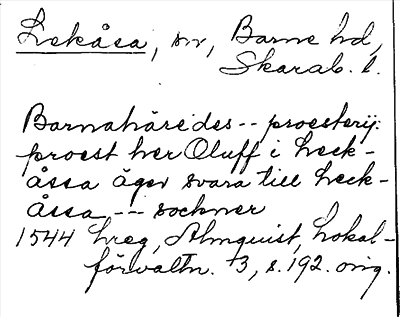 Lekåsa, sn, Barne hd,
Skarab. l.
Barnahäredes -- proesterij:
proest her Oluff i Leck-
åssa äger svara till Leck-
åssa -- sochner
1544 Lreg, Almquist, Lokal-
förvaltn. 3, s. 192. orig.